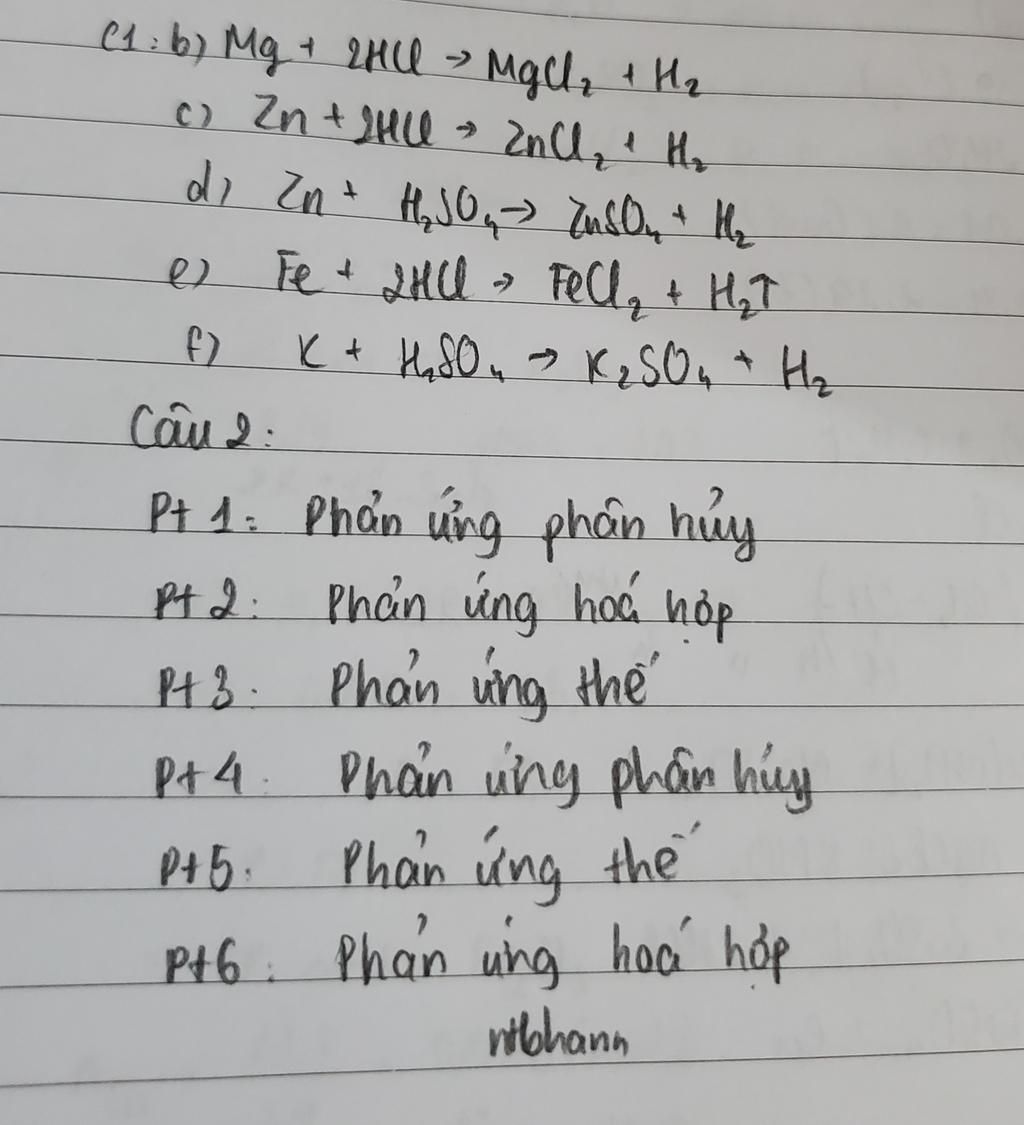 C1: b) Mg + 2HCl → MgCl₂ + H₂
c) Zn + 2HCl → ZnCl₂ + H₂
d) Zn + H₂SO₄ → ZnSO₄ + H₂
e) Fe + 2HCl → FeCl₂ + H₂↑
f) K + H₂SO₄ → K₂SO₄ + H₂
Câu 2:
Pt 1: Phản ứng phân hủy
Pt 2: Phản ứng hoá hợp
Pt 3: Phản ứng thế
Pt 4: Phản ứng phân hủy
Pt 5: Phản ứng thế
Pt 6: Phản ứng hoá hợp